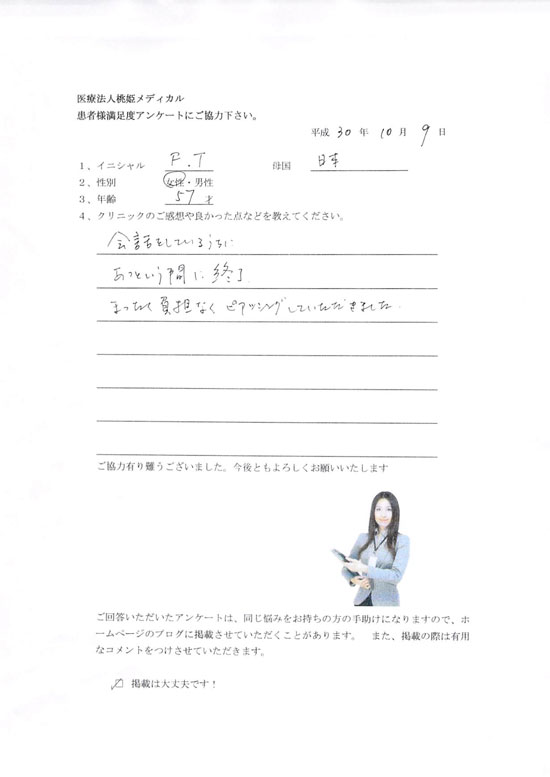 医療法人桃姫メディカル
患者様満足度アンケートにご協力下さい。
平成 30 年 10 月 9 日
1、イニシャル F.T 母国 日本
2、性別 女性・男性
3、年齢 57 才
4、クリニックのご感想や良かった点などを教えてください。
会話をしているうちに
あっという間に終了
まったく負担なくピアッシングしていただきました.
ご協力有り難うございました。今後ともよろしくお願いいたします
ご回答いただいたアンケートは、同じ悩みをお持ちの方の手助けになりますので、ホ
ームページのブログに掲載させていただくことがあります。 また、掲載の際は有用
なコメントをつけさせていただきます。
掲載は大丈夫です！